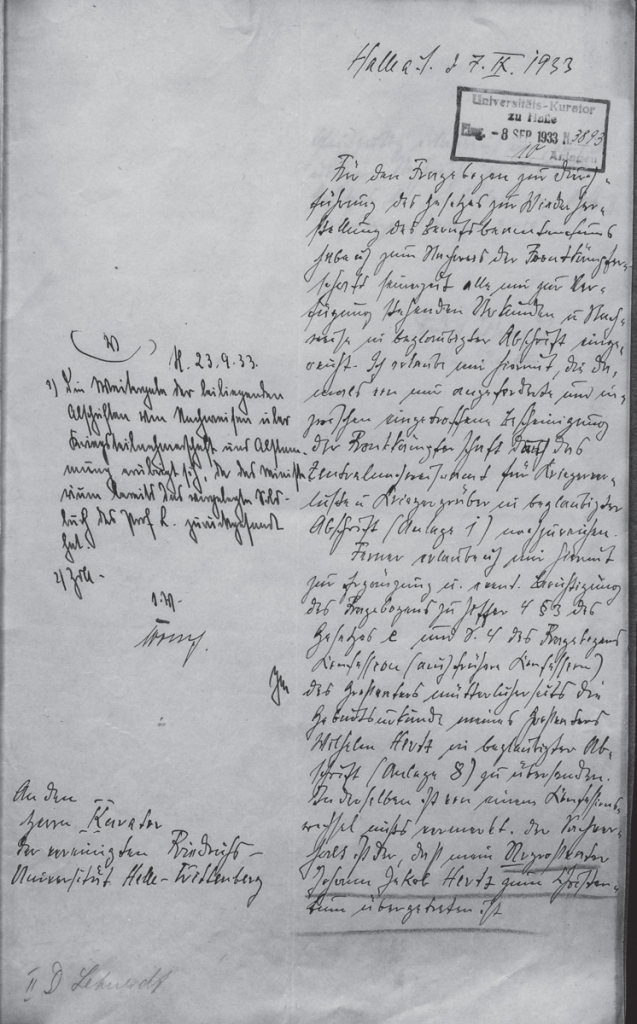 Halle a. S. d 7. IX. 1933
Universitäts-Kurator
zu Halle
Eing. - 8 SEP. 1933 N. 3893
10 Anlagen
Für den Fragebogen zur Durch-
führung des Gesetzes zur Wiederher-
stellung des Berufsbeamtentums
habe ich zum Nachweis der Frontkämpfer-
schaft seinerzeit alle mir zur Ver-
fügung stehenden Urkunden u Nach-
weise in beglaubigter Abschrift einge-
reicht. Ich erlaube mir hiermit, die da-
mals von mir angeforderte und in-
zwischen eingetroffene Bescheinigung
der Frontkämpferschaft des
Zentralnachweiseamt für Kriegerver-
luste u Kriegergräber in beglaubigter
Abschrift (Anlage 1) nachzureichen.
Ferner erlaube ich mir hiermit
zur Ergänzung u. event. Berichtigung
des Fragebogens zu Ziffer 4 § 3 des
Gesetzes e und S. 4 des Fragebogens
Konfession (auch frühere Konfession)
des Großvaters mütterlicherseits die
Geburtsurkunde meines Großvaters
Wilhelm Hertz in beglaubigter Ab-
schrift (Anlage 8) zu übersenden.
In derselben ist von einem Konfessions-
wechsel nichts vermerkt. Der Sachver-
halt ist der, daß mein Urgroßvater
Johann Jakob Hertz zum Christen-
tum übergetreten ist
W
H. 23.9.33.
1) Die Weitergabe der beiliegenden
Abschriften von Nachweisen über
Kriegsteilnehmerschaft und Abstam-
mung erübrigt sich, da das Ministe-
rium bereits das vorgelegte
des Prof L. zurückgesandt
hat.
2) Z.d.A.
I.V.
An den
Herrn Kurator
der vereinigten Friedrichs-
Universität Halle-Wittenberg
II D Lehnerdt